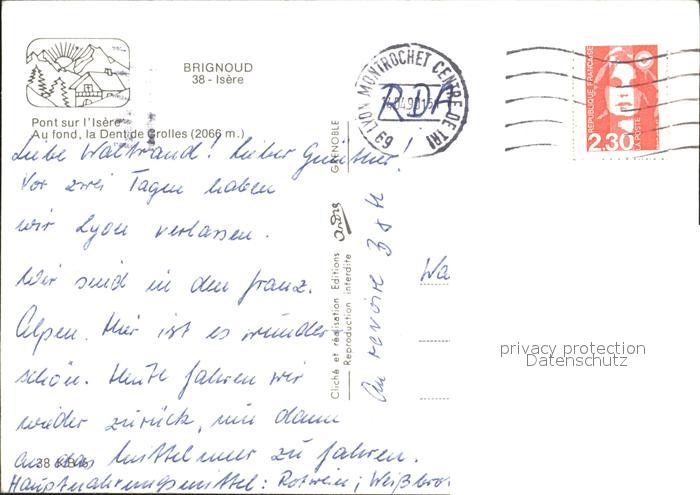 BRIGNOUD
38 - Isère
Pont sur l'Isère
Au fond, la Dent de Crolles (2066 m.)
Liebe Waltraud! Lieber Günther!
Vor zwei Tagen haben
wir Lyon verlassen.
Wir sind in den franz.
Alpen. Hier ist es wunder
schön. Heute fahren wir
wieder zurück, um dann
an das Mittelmeer zu fahren.
Hauptnahrungsmittel: Rotwein; Weißbro
Au revoire B + H
GRENOBLE
Cliché et réalisation Editions André
Reproduction interdite
69 LYON MONTROCHET CENTRE DE TRI
RDA
Wa
REPUBLIQUE FRANÇAISE
2,30
LA POSTE
privacy protection
Datenschutz